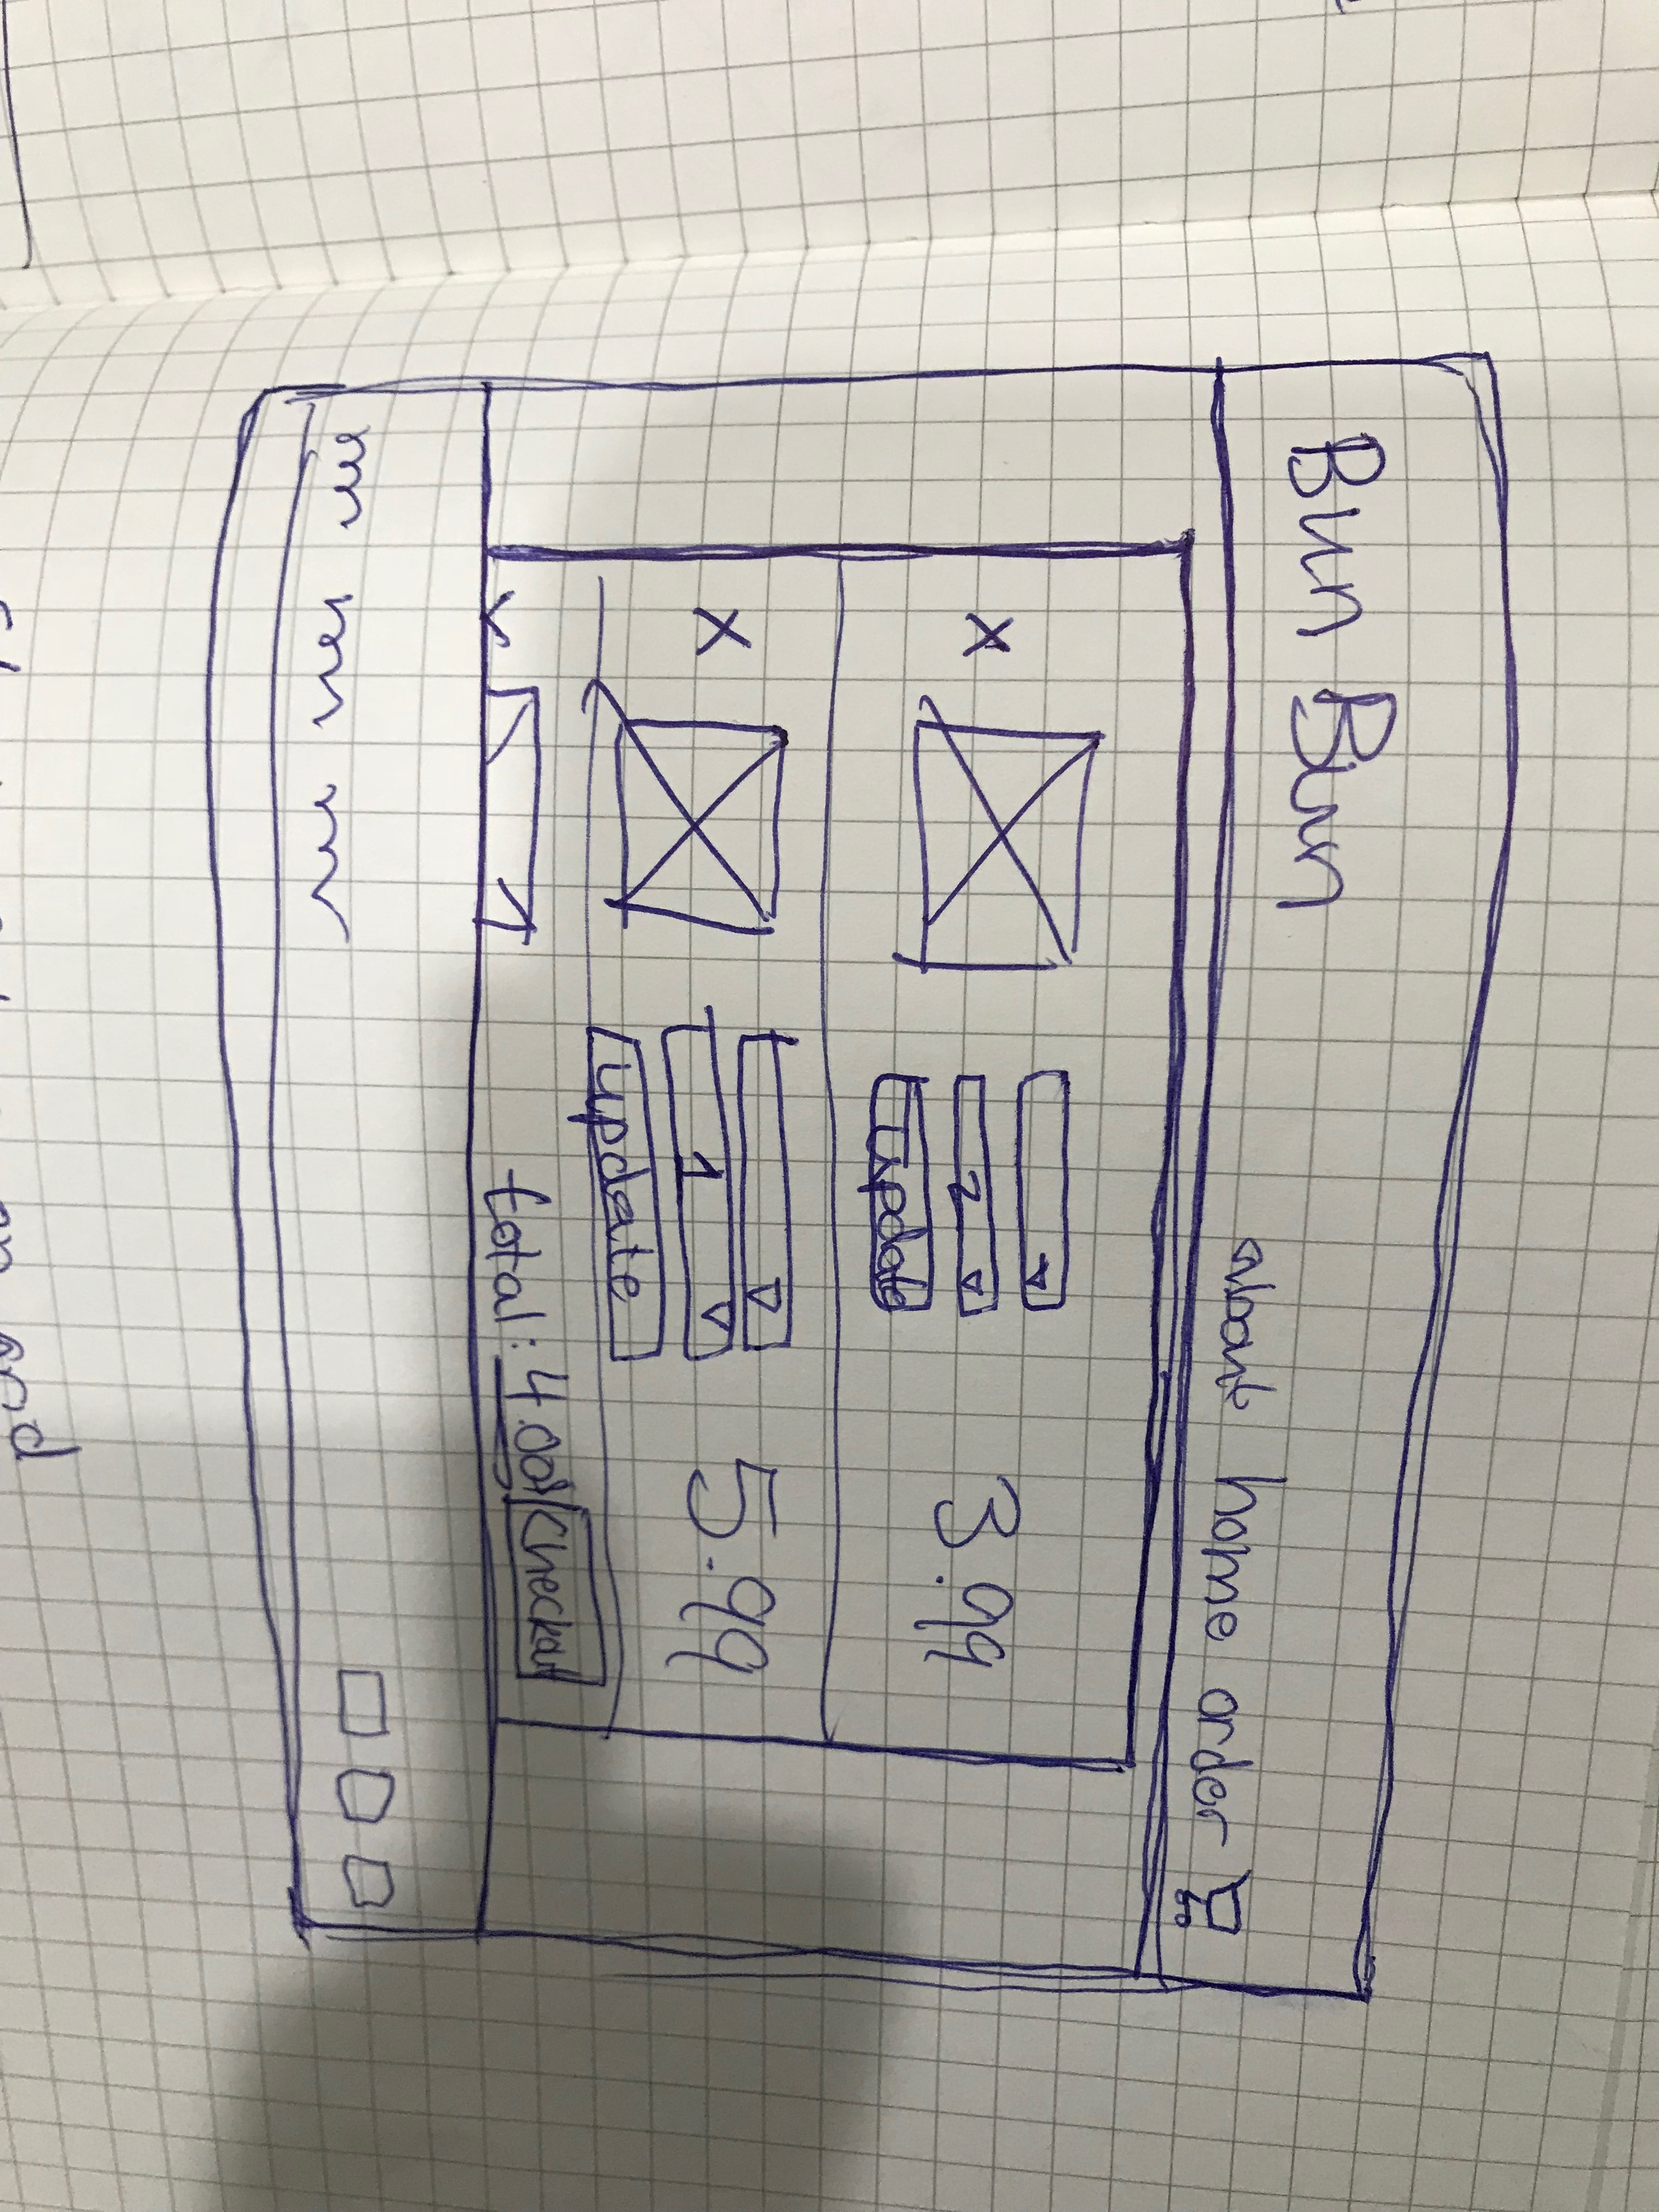 Bun Bun
about home order
X
3.99
2
Update
X
5.99
1
update
X
total: 4.00
Checkout